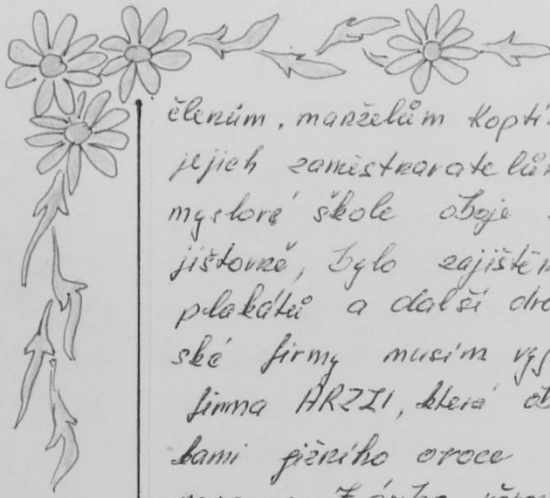 členům, manželům Kopti
jejich zaměstnavatelům
myslové škole oboje
jišťovně, bylo zajištěn
plakátů a další dro
ské firmy musím vy
firma ARZZI, které ob
bami jižního ovoce